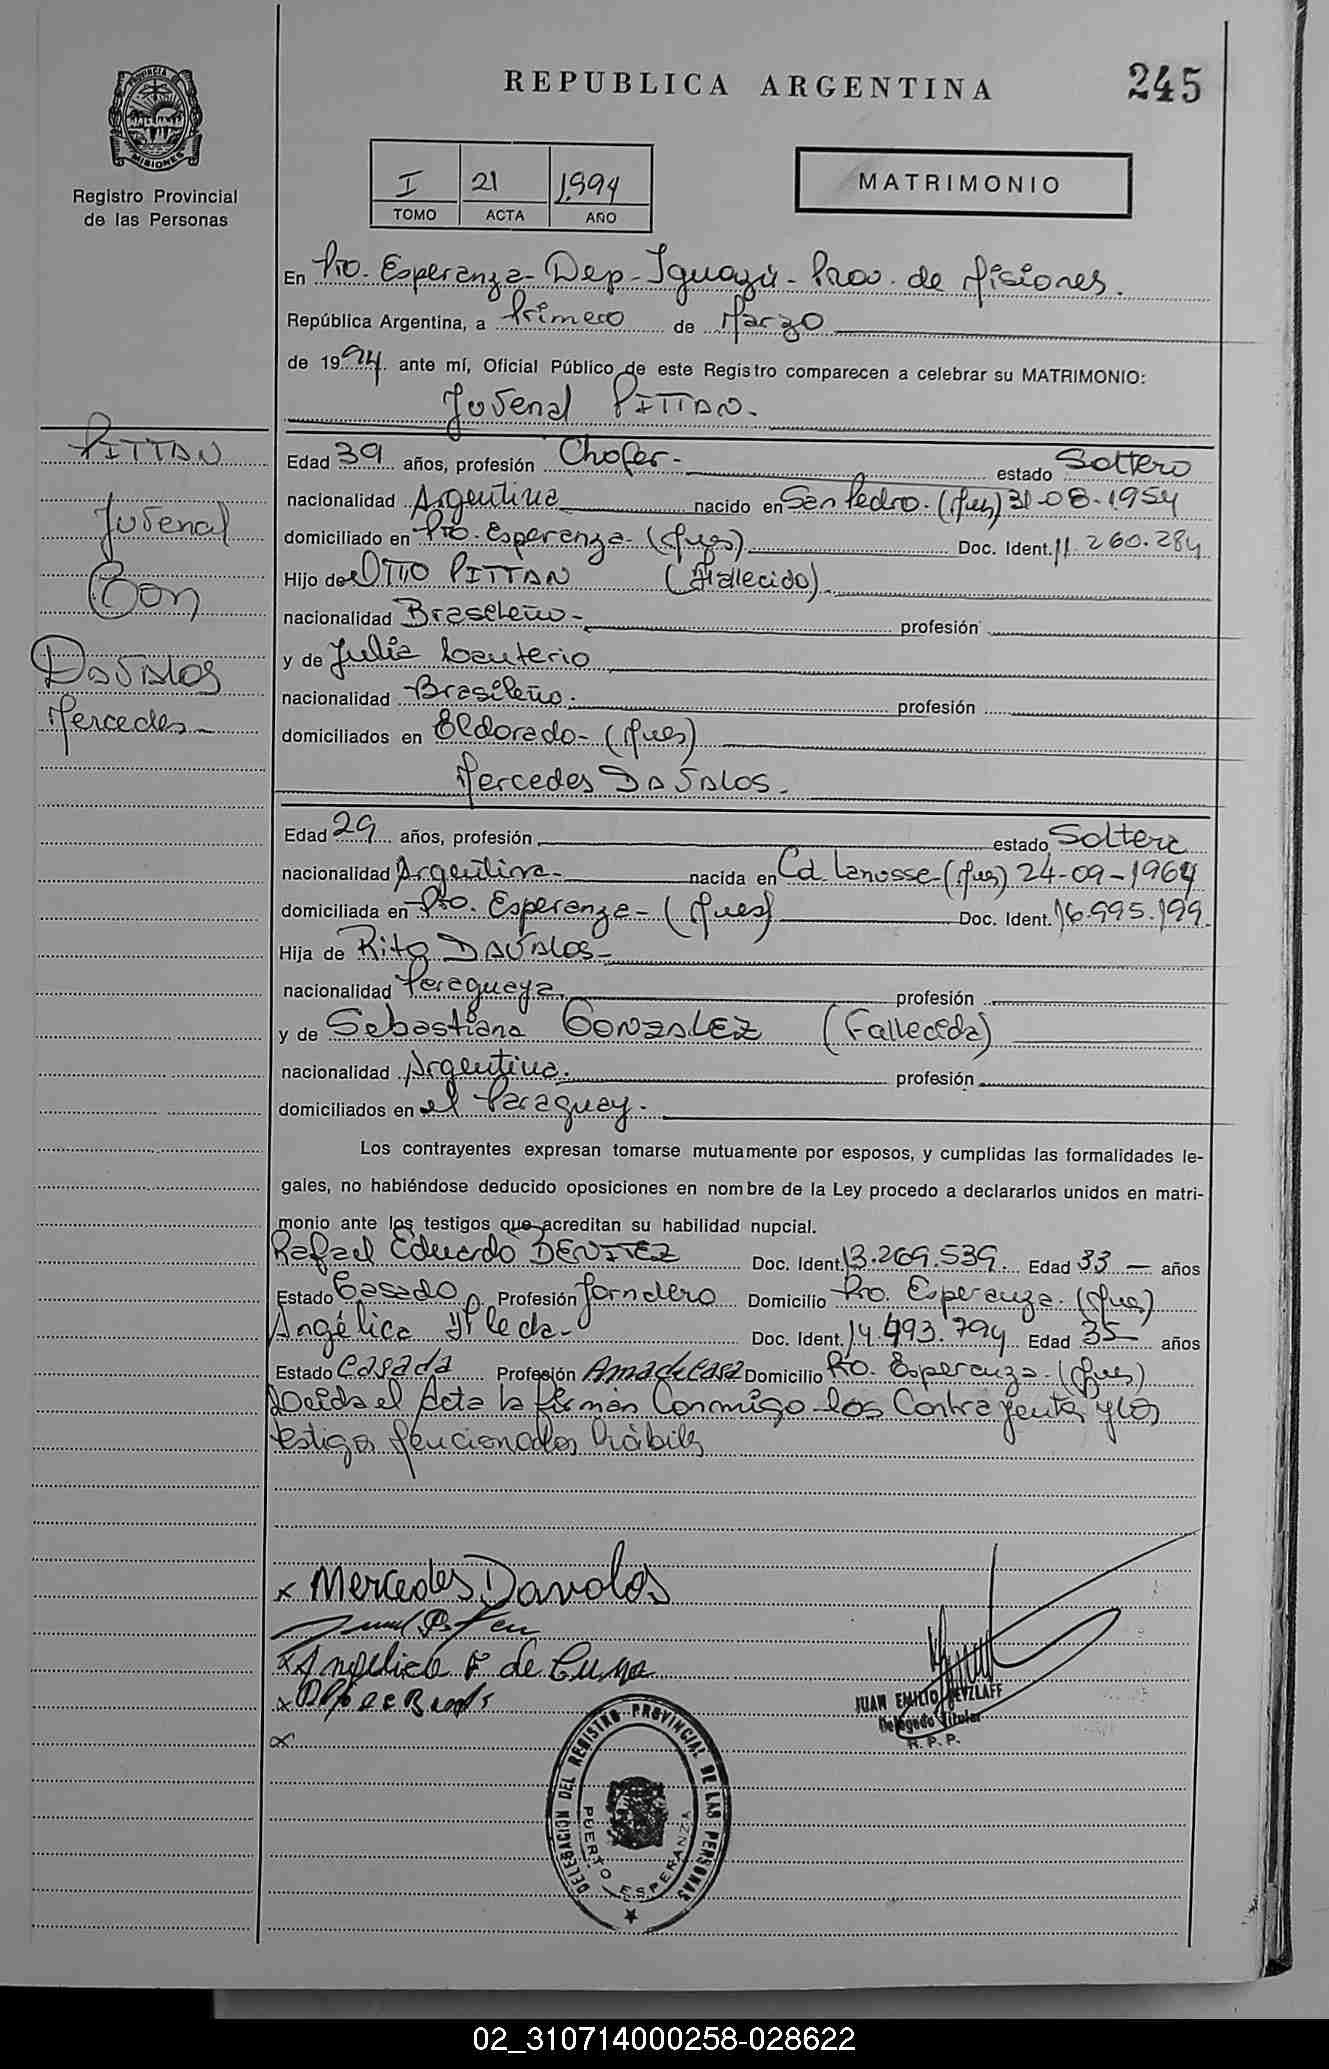 REPUBLICA ARGENTINA
245
PROVINCIA DE
MISIONES
Registro Provincial
de las Personas
I 21 1.994
TOMO ACTA AÑO
MATRIMONIO
En Pto. Esperanza - Dep - Iguazú - Prov. de Misiones.
República Argentina, a Primero de Marzo
de 1994 ante mí, Oficial Público de este Registro comparecen a celebrar su MATRIMONIO:
Juvenal PITTAN.
PITTAN
Juvenal
Con
DAVALOS
Mercedes
Edad 39 años, profesión Chofer - estado Soltero
nacionalidad Argentina nacido en San Pedro. (Mnes) 31-08-1.954
domiciliado en Pto. Esperanza - (Mnes) Doc. Ident. 11.260.284
Hijo de OTTO PITTAN (Fallecido)
nacionalidad Brasileño - profesión
y de Julia Lauterio
nacionalidad Brasileño. profesión
domiciliados en Eldorado - (Mnes)
Mercedes DAVALOS.
Edad 29 años, profesión estado Soltera
nacionalidad Argentina - nacida en Cd. Lanusse - (Mnes) 24-09-1964
domiciliada en Pto. Esperanza - (Mnes) Doc. Ident. 16.995.199
Hija de Rito DAVALOS -
nacionalidad Paraguaya. profesión
y de Sebastiana GONZALEZ (Fallecida)
nacionalidad Argentina. profesión
domiciliados en el Paraguay.
Los contrayentes expresan tomarse mutuamente por esposos, y cumplidas las formalidades le-
gales, no habiéndose deducido oposiciones en nombre de la Ley procedo a declararlos unidos en matri-
monio ante los testigos que acreditan su habilidad nupcial.
Rafael Eduardo BENITEZ Doc. Ident. 13.269.539. Edad 33 - años
Estado Casado Profesión Jornalero Domicilio Pto. Esperanza - (Mnes)
Angélica Doc. Ident. 14.493.794 Edad 35 años
Estado Casada Profesión Ama de Casa Domicilio Pto. Esperanza - (Mnes)
Leída el Acta la firman conmigo los Contrayentes y los
testigos mencionados hábiles
x Mercedes Davolos
x Angelica F de Cuna
x
x
JUAN EMILIO RETZLAFF
Delegado Titular
R. P. P.
DELEGACION DEL REGISTRO PROVINCIAL DE LAS PERSONAS
PUERTO ESPERANZA
02_310714000258-028622